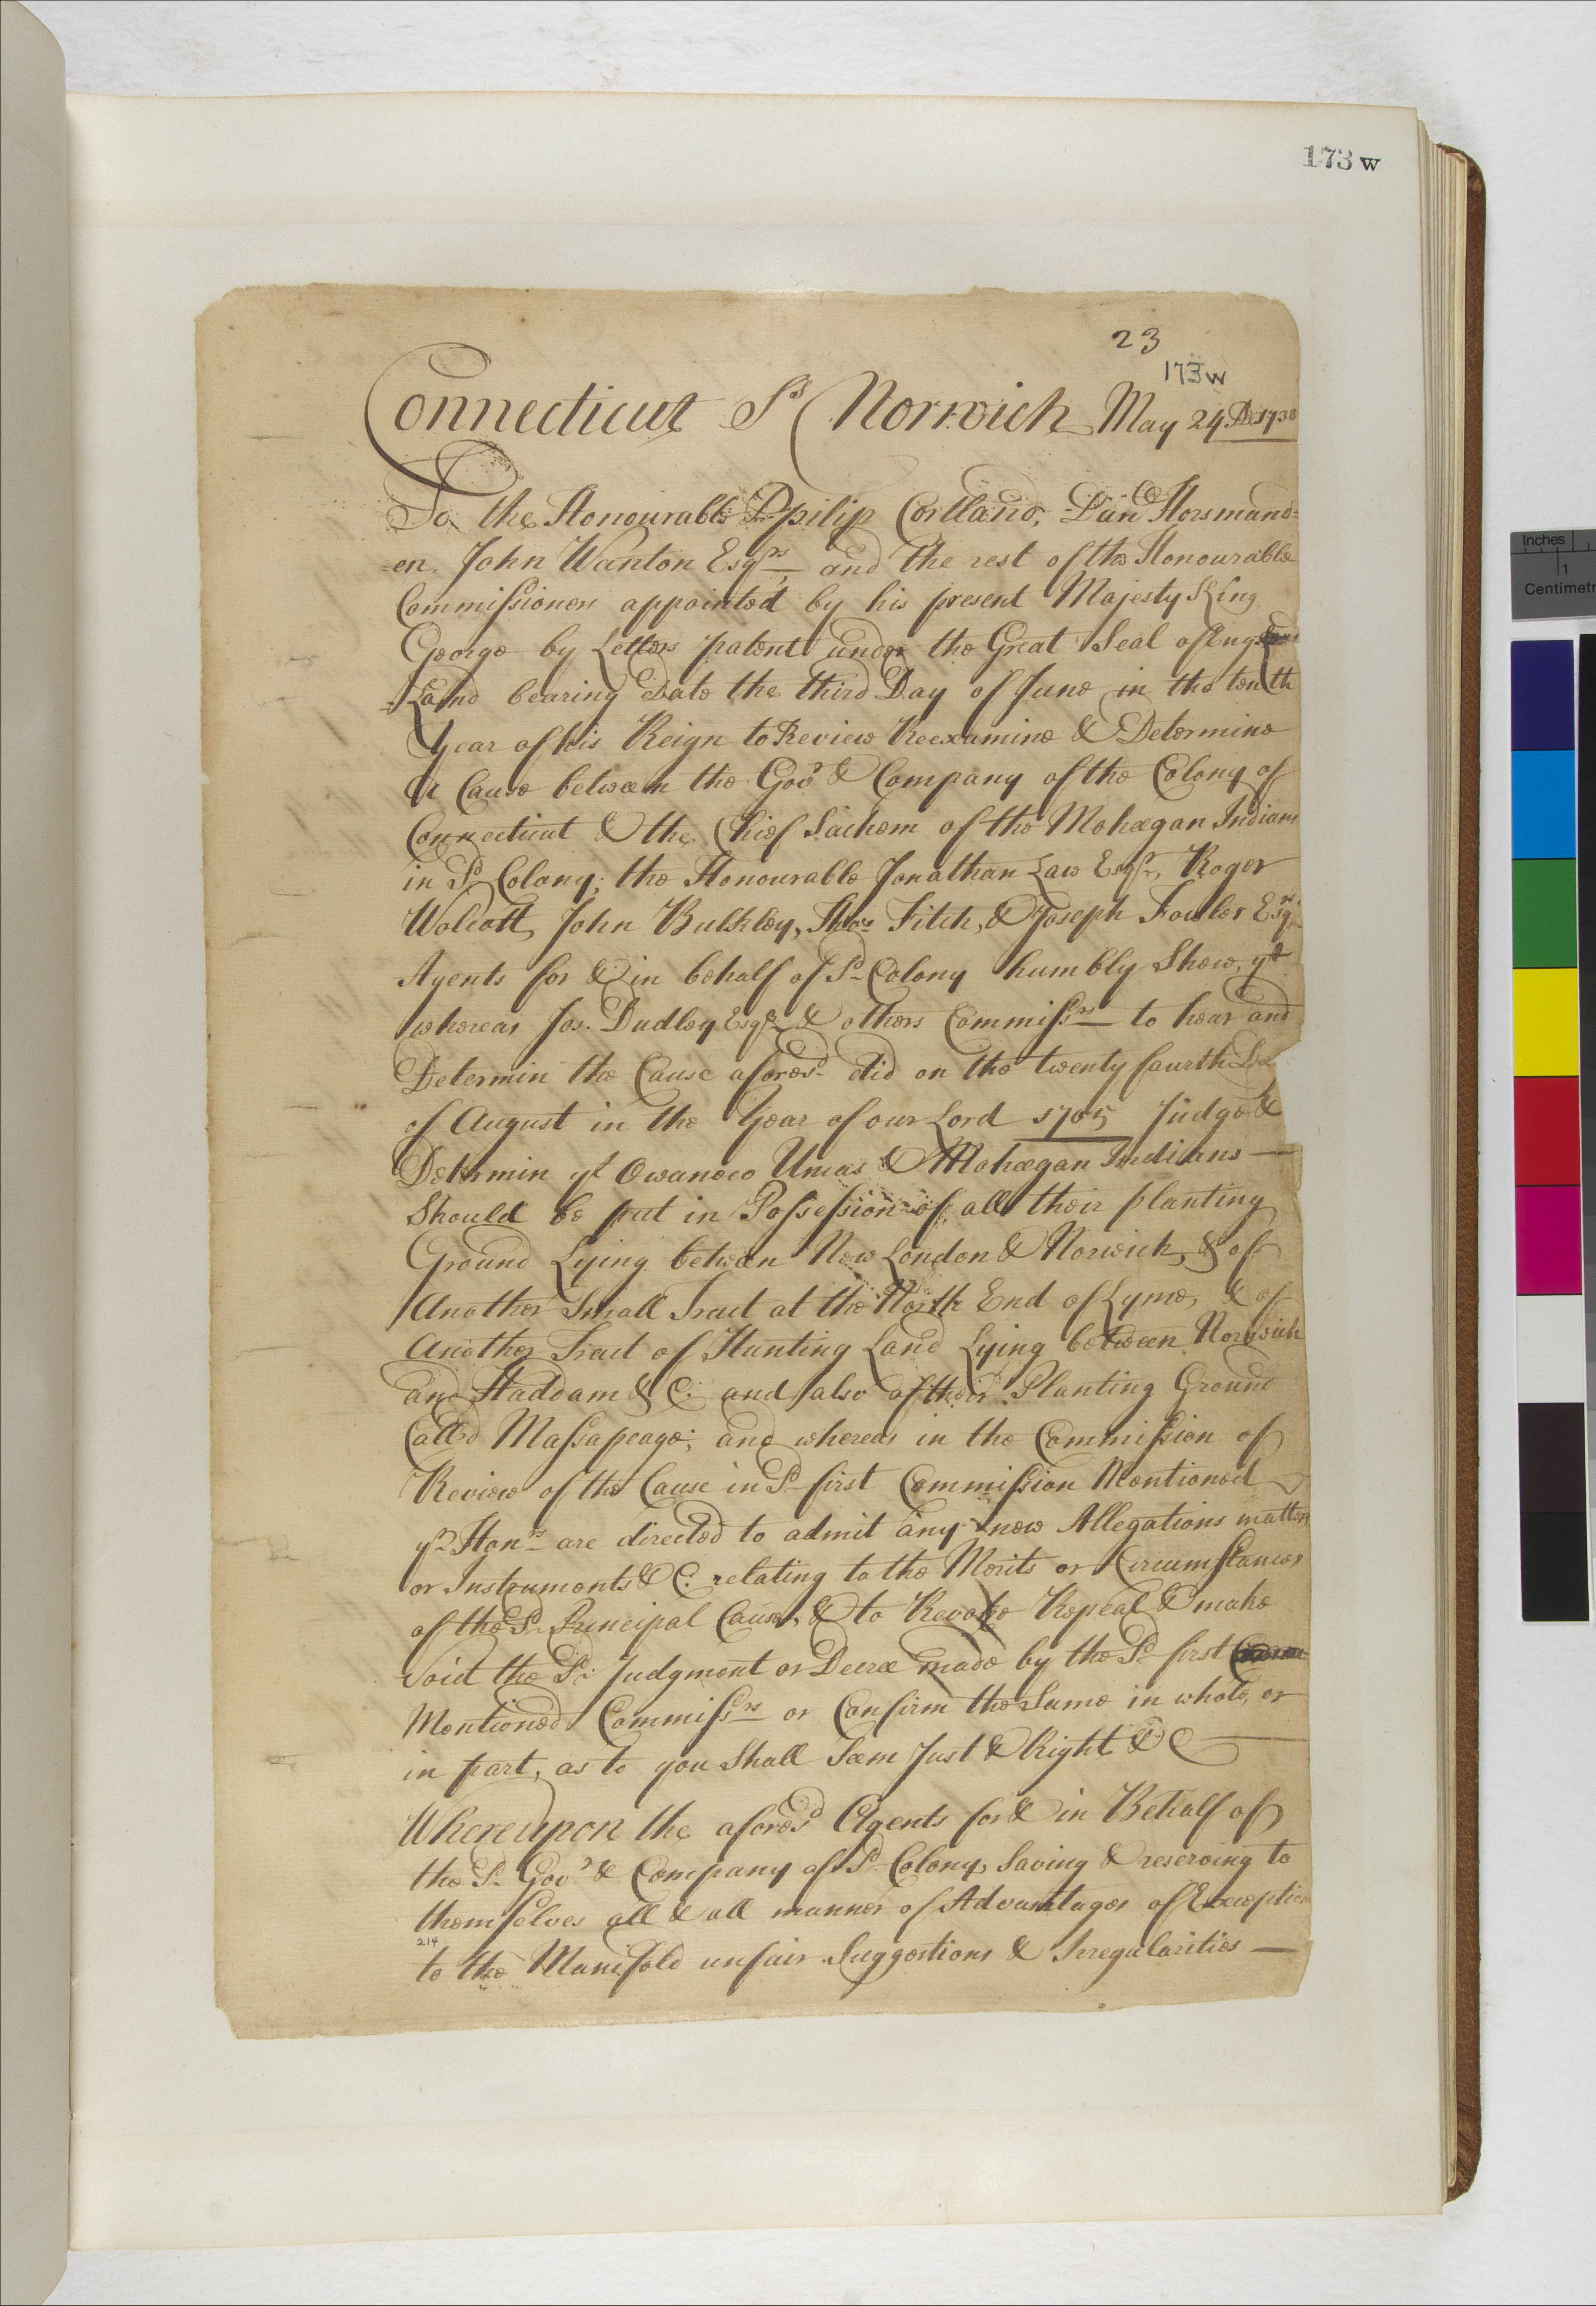 173 w
23
173w
Connecticut Ss Norwich May 24 AD 1738
To the Honourable Philip Cortland, Danll Horsmand=
=en, John Wanton Esqrs and the rest of the Honourable
Commissioners appointed by his present Majesty King
George by Letters patent under the Great Seal of Eng
=Land bearing Date the third Day of June in the tenth
Year of his Reign to Review Reexamine & Determine
A Cause between the Govr & Company of the Colony of
Connecticut & the Chief Sachem of the Mohegan Indians
in Sd Colony; the Honourable Jonathan Law Esqr, Roger
Wolcott, John Bulkley, Thos Fitch, & Joseph Fowler Esqrs
Agents for & in behalf of Sd Colony humbly Show, yt
whereas Jos. Dudley Esqr & others Commissrs to hear and
Determin the Cause aforesd did on the twenty fourth Da
of August in the Year of our Lord 1705 Judge &
Determin yt Owaneco Uncas & Mohegan Indians —
Should be put in Possession of all their planting
Ground Lying between New London & Norwich, & of
Another Small Tract at the North End of Lyme, & of
Another Tract of Hunting Land Lying between Norwich
and Haddam & C: and also of their Planting Ground
Called Massapeage; and whereas in the Commission of
Review of the Cause in Sd first Commission Mentioned
yr Honrs are directed to admit any new Allegations matters
or Instruments & C: relating to the Merits or Circumstances
of the Sd Principal Cause, & to Revoke Repeal & make
Void the Sd Judgment or Decree made by the Sd first
Mentioned Commissrs or Confirm the Same in whole, or
in part, as to you Shall Seem Just & Right & C —
Whereupon the aforesd Agents for & in Behalf of
the Sd Govr & Company of Sd Colony, Saving & reserving to
themselves all & all manner of Advantages of Exception
214
to the Manifold unfair Suggestions & Irregularities —
Inches
1
Centimetr